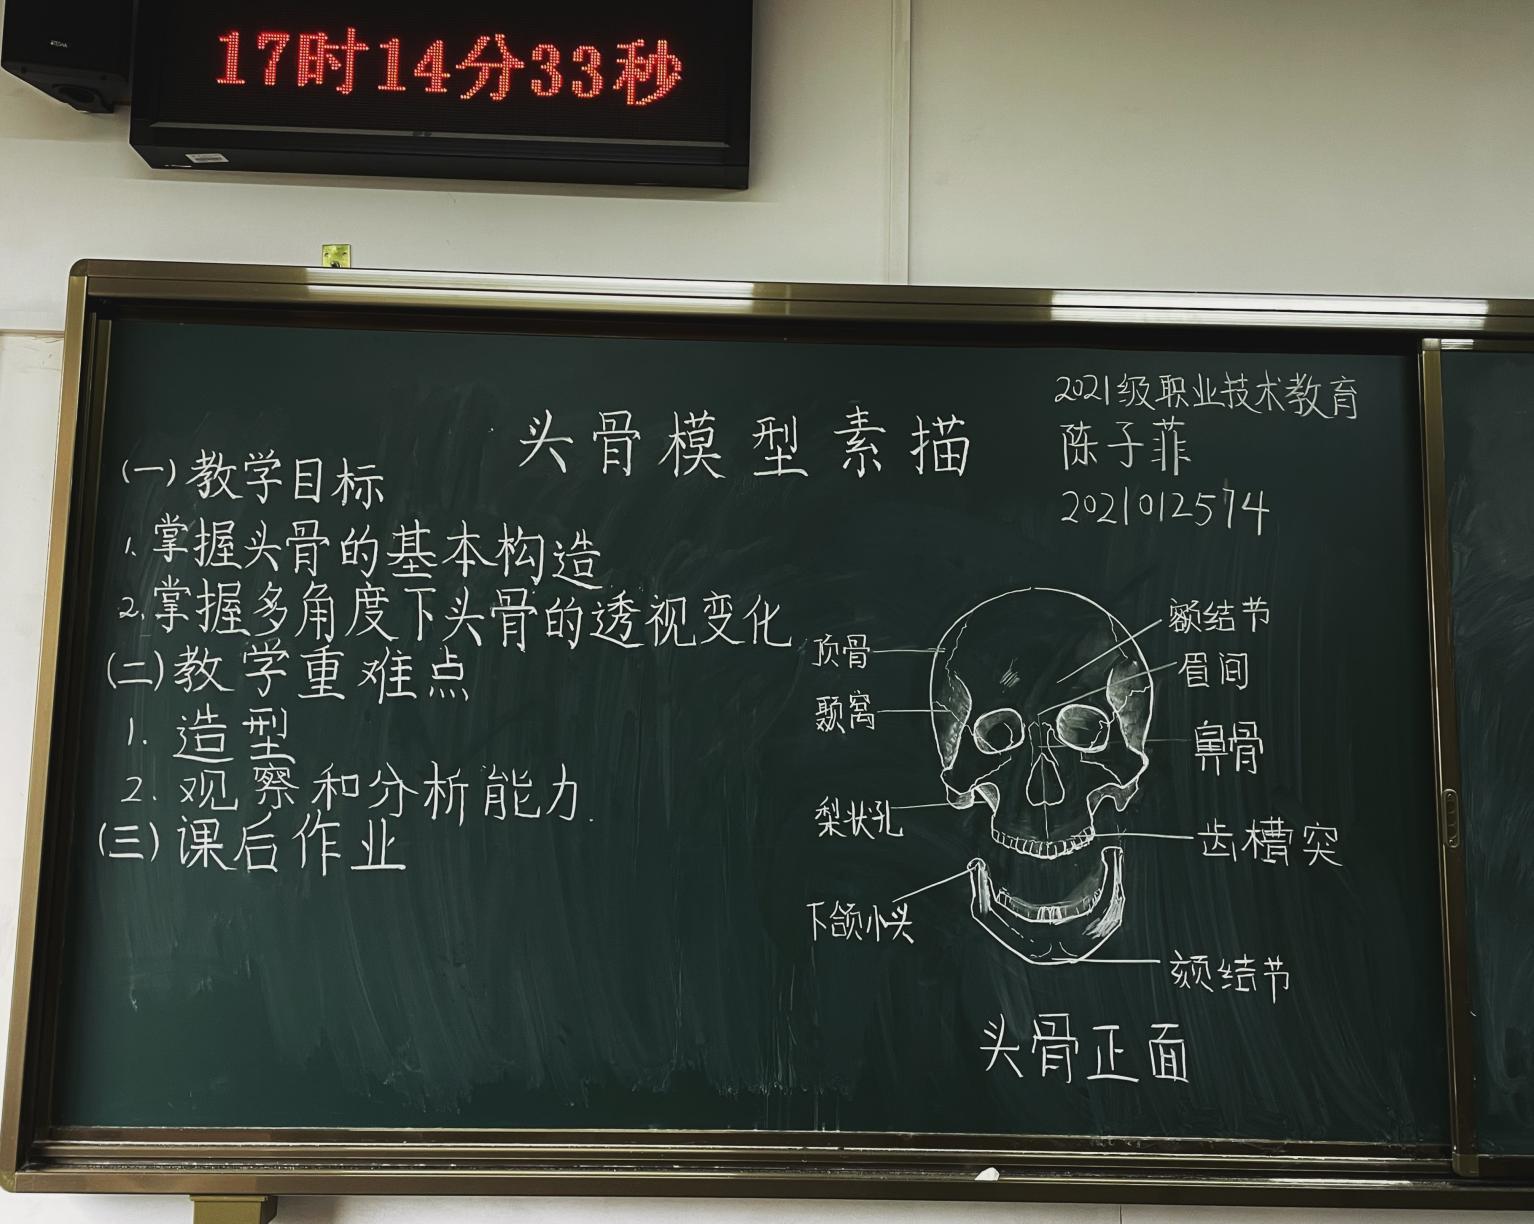 17时14分33秒
2021级职业技术教育
陈子菲
2021012574
头骨模型素描
(一)教学目标
1.掌握头骨的基本构造
2.掌握多角度下头骨的透视变化
(二)教学重难点
1.造型
2.观察和分析能力.
(三)课后作业
顶骨
颞窝
梨状孔
下颌小头
额结节
眉间
鼻骨
齿槽突
颏结节
头骨正面